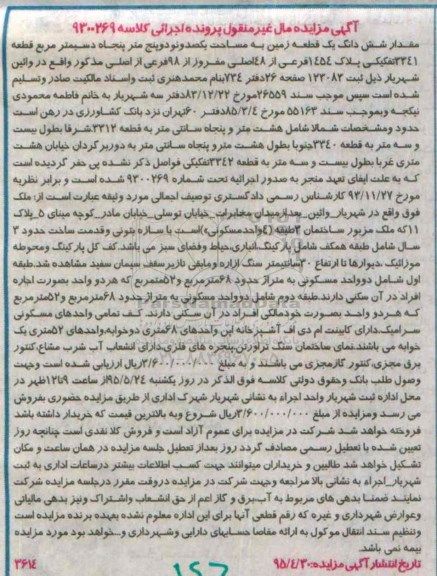 آگهی مزایده مال غیرمنقول پرونده اجرائی کلاسه ۹۳۰۰۲۶۹
مقدار شش دانگ یک قطعه زمین به مساحت یکصدونودوپنج متر پنجاه دسیمتر مربع قطعه
۳۳۴۱تفکیکی پلاک ۱۴۵۴فرعی از ۴۸اصلی مفروز از ۹۸فرعی از اصلی مذکور واقع در وائین
شهریار ذیل ثبت ۱۲۳۰۸۳ صفحه ۲۶دفتر ۷۳۴بنام محمدهنری ثبت واسناد مالکیت صادر وتسلیم
شده است سپس موجب سند ۲۶۵۵۹مورخ ۸۳/۱۲/۲۲دفتر سه شهریار به خانم فاطمه محمودی
نیکجه وبموجب سند ۵۵۱۶۳ مورخ ۸۵/۳/۴دفتر ۶۰تهران نزد بانک کشاورزی در رهن است
حدود ومشخصات شمالا شامل هشت متر و پنجاه سانتی متر به قطعه ۳۳۱۲شرقا بطول بیست
و سه متر به قطعه ۳۳۴۰جنوبا بطول هشت مترو پنجاه سانتی متر به دوربرگردان خیابان هشت
متری غربا بطول بیست و سه متر به قطعه ۳۳۴۲تفکیکی فواصل ذکر نشده پی حفر گردیده است
که به علت ایفای تعهد منجر به صدور اجرائیه تحت شماره ۹۳۰۰۲۶۹ شده است و برابر نظریه
مورخ ۹۳/۱۱/۲۷ کارشناس رسمی دادگستری توصیف اجمالی مورد وثیقه عبارت است از: ملک
فوق واقع در شهریار_وائین_بعدازمیدان مخابرات_خیابان توسلی_خیابان مادر_کوچه مینای ۵_پلاک
۱۱که ملک مزبور ساختمان ۳طبقه (۴واحدمسکونی)است با سازه بتونی وقدمت ساخت حدود ۳
سال شامل طبقه همکف شامل پارکینگ،انباری،حیاط وفضای سبز می باشد. کف کل پارکینگ ومحوطه
موزائیک دیوارها تا ارتفاع ۳۰سانتیمتر سنگ ازاره ومابقی تازیرسقف سیمان سفید مشاهده شد.طبقه
اول شامل دوواحد مسکونی به متراژ حدود ۶۸مترمربع و۵۲مترمربع که هردو واحد بصورت اجاره
افراد در آن سکنی دارند.طبقه دوم شامل دوواحد مسکونی به متراژ حدود ۶۸مترمربع و۵۲مترمربع
که هردو واحد بصورت خودمالکی افراد در آن سکنی دارند. کف تمامی واحدهای مسکونی
سرامیک،دارای کابینت ام دی اف آشپزخانه این واحدهای ۶۸متری دوخوابه،واحدهای ۵۲متری یک
خوابه می باشند.نمای ساختمان سنگ تراورتن،پنجره های فلزی،دارای انشعاب آب شرب مشاع،کنتور
برق مجزی،کنتور گازمجزی می باشند و به مبلغ ۳/۶۰۰/۰۰۰/۰۰۰ریال ارزیابی شده است وجهت
وصول طلب بانک وحقوق دولتی کلاسه فوق الذکر در روز یکشنبه ۹۵/۵/۲۴از ساعت ۹تا۱۲ظهر در
محل اداره ثبت شهریار واحد اجراء به نشانی شهریار شهرک اداری از طریق مزایده حضوری بفروش
می رسد ومزایده از مبلغ ۳/۶۰۰/۰۰۰/۰۰۰ریال شروع وبه بالاترین قیمت که خریدار داشته باشد
فروخته خواهد شد. شرکت در مزایده برای عموم آزاد است و فروش کلا نقدی است چنانچه روز
تعیین شده با تعطیل رسمی مصادف گردد روز بعداز تعطیل جلسه مزایده در همان ساعت و مکان
تشکیل خواهد شد طالبین و خریداران میتوانند جهت کسب اطلاعات بیشتر درساعات اداری به ثبت
شهریار_اجراء به نشانی بالا مراجعه وجهت شرکت در مزایده دروقت مقرر درجلسه مزایده شرکت
نمایند ضمنا بدهی های مربوط به آب،برق و گاز اعم از حق انشعاب واشتراک ونیز بدهی مالیاتی
وعوارض شهرداری و غیره که رقم قطعی آنها برای این اداره معلوم نشده بعهده برنده مزایده است
وتنظیم سند انتقال موکول به ارائه مفاصا حسابهای دارایی وشهرداری و..خواهد بود مورد مزایده
بیمه نمی باشد.
تاریخ انتشار آگهی مزایده:۹۵/۴/۳۰ ۳۶۱۴